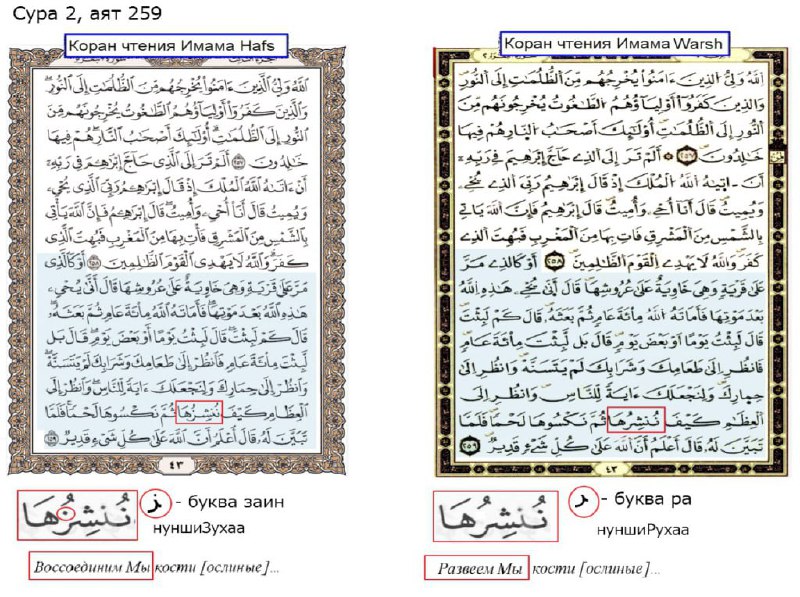 Сура 2, аят 259
Коран чтения Имама Hafs
اللَّهُ وَلِيُّ الَّذِينَ ءَامَنُوا يُخْرِجُهُم مِّنَ الظُّلُمَٰتِ إِلَى النُّورِ
وَالَّذِينَ كَفَرُوا أَوْلِيَآؤُهُمُ الطَّٰغُوتُ يُخْرِجُونَهُم مِّنَ
النُّورِ إِلَى الظُّلُمَٰتِ أُولَٰئِكَ أَصْحَٰبُ النَّارِ هُمْ فِيهَا
خَٰلِدُونَ ٢٥٧ أَلَمْ تَرَ إِلَى الَّذِي حَآجَّ إِبْرَٰهِمَ فِي رَبِّهِ
أَنْ ءَاتَىٰهُ اللَّهُ الْمُلْكَ إِذْ قَالَ إِبْرَٰهِمُ رَبِّيَ الَّذِي يُحْيِ
وَيُمِيتُ قَالَ أَنَا أُحْيِ وَأُمِيتُ قَالَ إِبْرَٰهِمُ فَإِنَّ اللَّهَ يَأْتِي
بِالشَّمْسِ مِنَ الْمَشْرِقِ فَأْتِ بِهَا مِنَ الْمَغْرِبِ فَبُهِتَ الَّذِي
كَفَرَ وَاللَّهُ لَا يَهْدِي الْقَوْمَ الظَّٰلِمِينَ ٢٥٨ أَوْ كَالَّذِي
مَرَّ عَلَىٰ قَرْيَةٍ وَهِيَ خَاوِيَةٌ عَلَىٰ عُرُوشِهَا قَالَ أَنَّىٰ يُحْيِ
هَٰذِهِ اللَّهُ بَعْدَ مَوْتِهَا فَأَمَاتَهُ اللَّهُ مِائَةَ عَامٍ ثُمَّ بَعَثَهُ
قَالَ كَمْ لَبِثْتَ قَالَ لَبِثْتُ يَوْمًا أَوْ بَعْضَ يَوْمٍ قَالَ بَل
لَّبِثْتَ مِائَةَ عَامٍ فَانظُرْ إِلَىٰ طَعَامِكَ وَشَرَابِكَ لَمْ يَتَسَنَّهْ
وَانظُرْ إِلَىٰ حِمَارِكَ وَلِنَجْعَلَكَ ءَايَةً لِّلنَّاسِ وَانظُرْ إِلَى
الْعِظَامِ كَيْفَ نُنشِزُهَا ثُمَّ نَكْسُوهَا لَحْمًا فَلَمَّا
تَبَيَّنَ لَهُ قَالَ أَعْلَمُ أَنَّ اللَّهَ عَلَىٰ كُلِّ شَيْءٍ قَدِيرٌ ٢٥٩
٤٣
نُنشِزُهَا
ز - буква заин
нуншиЗухаа
Воссоединим Мы кости [ослиные]...
Коран чтения Имама Warsh
اللَّهُ وَلِيُّ الذِينَ ءَامَنُوا يُخْرِجُهُم مِّنَ الظُّلُمَٰتِ إِلَى النُّورِ
وَالذِينَ كَفَرُوا أَوْلِيَآؤُهُمُ الطَّٰغُوتُ يُخْرِجُونَهُم مِّنَ
النُّورِ إِلَى الظُّلُمَٰتِ أُولَٰئِكَ أَصْحَٰبُ النَّارِ هُمْ فِيهَا
خَٰلِدُونَ ٢٥٧ أَلَمْ تَرَ إِلَى الذِي حَآجَّ إِبْرَٰهِيمَ فِي رَبِّهِ
أَنَ اتَيٰهُ اللَّهُ الْمُلْكَ إِذْ قَالَ إِبْرَٰهِيمُ رَبِّيَ الذِي يُحْيِ
وَيُمِيتُ قَالَ أَنَا أُحْيِ وَأُمِيتُ قَالَ إِبْرَٰهِيمُ فَإِنَّ اللَّهَ يَاتِي
بِالشَّمْسِ مِنَ الْمَشْرِقِ فَاتِ بِهَا مِنَ الْمَغْرِبِ فَبُهِتَ الذِي
كَفَرَ وَاللَّهُ لَا يَهْدِي الْقَوْمَ الظَّٰلِمِينَ ٢٥٨ أَوْ كَالذِي مَرَّ
عَلَىٰ قَرْيَةٍ وَهِيَ خَاوِيَةٌ عَلَىٰ عُرُوشِهَا قَالَ أَنَّىٰ يُحْيِ هَٰذِهِ اللَّهُ
بَعْدَ مَوْتِهَا فَأَمَاتَهُ اللَّهُ مِائَةَ عَامٍ ثُمَّ بَعَثَهُ قَالَ كَمْ لَبِثْتَ
قَالَ لَبِثْتُ يَوْمًا أَوْ بَعْضَ يَوْمٍ قَالَ بَل لَّبِثْتَ مِائَةَ عَامٍ
فَانظُرِ إِلَىٰ طَعَامِكَ وَشَرَابِكَ لَمْ يَتَسَنَّهْ وَانظُرِ إِلَىٰ
حِمَارِكَ وَلِنَجْعَلَكَ ءَايَةً لِّلنَّاسِ وَانظُرِ إِلَى
الْعِظَٰمِ كَيْفَ نُنشِرُهَا ثُمَّ نَكْسُوهَا لَحْمًا فَلَمَّا
تَبَيَّنَ لَهُ قَالَ أَعْلَمُ أَنَّ اللَّهَ عَلَىٰ كُلِّ شَيْءٍ قَدِيرٌ ٢٥٩
٤٣
نُنشِرُهَا
ر - буква ра
нуншиРухаа
Развеем Мы кости [ослиные]...